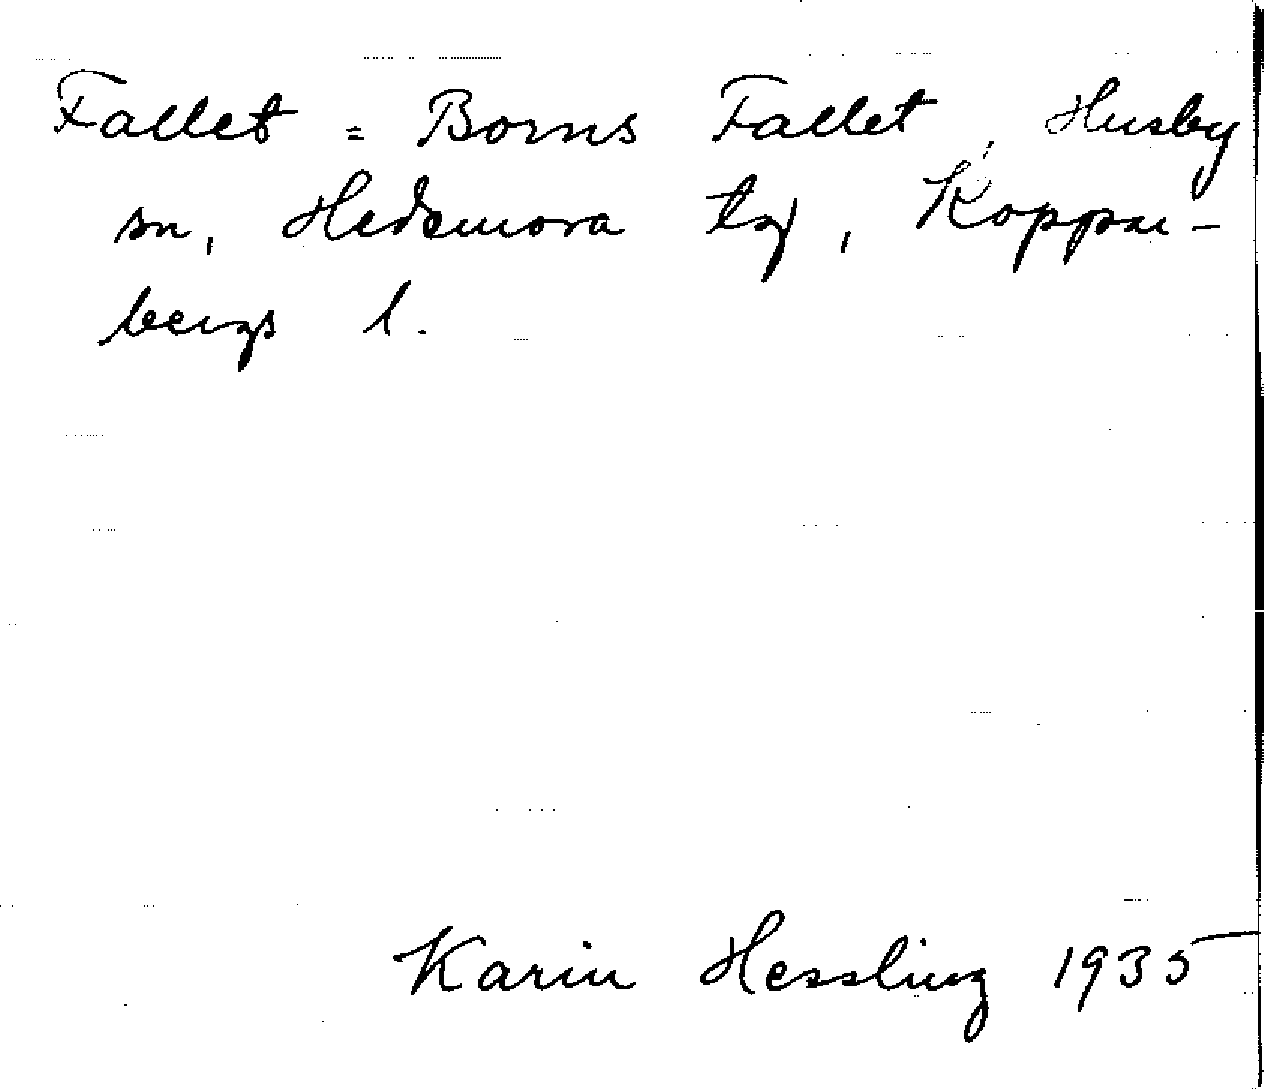 Fallet = Borns Fallet, Husby
sn, Hedemora tg, Koppar-
bergs l.
Karin Hessling 1935